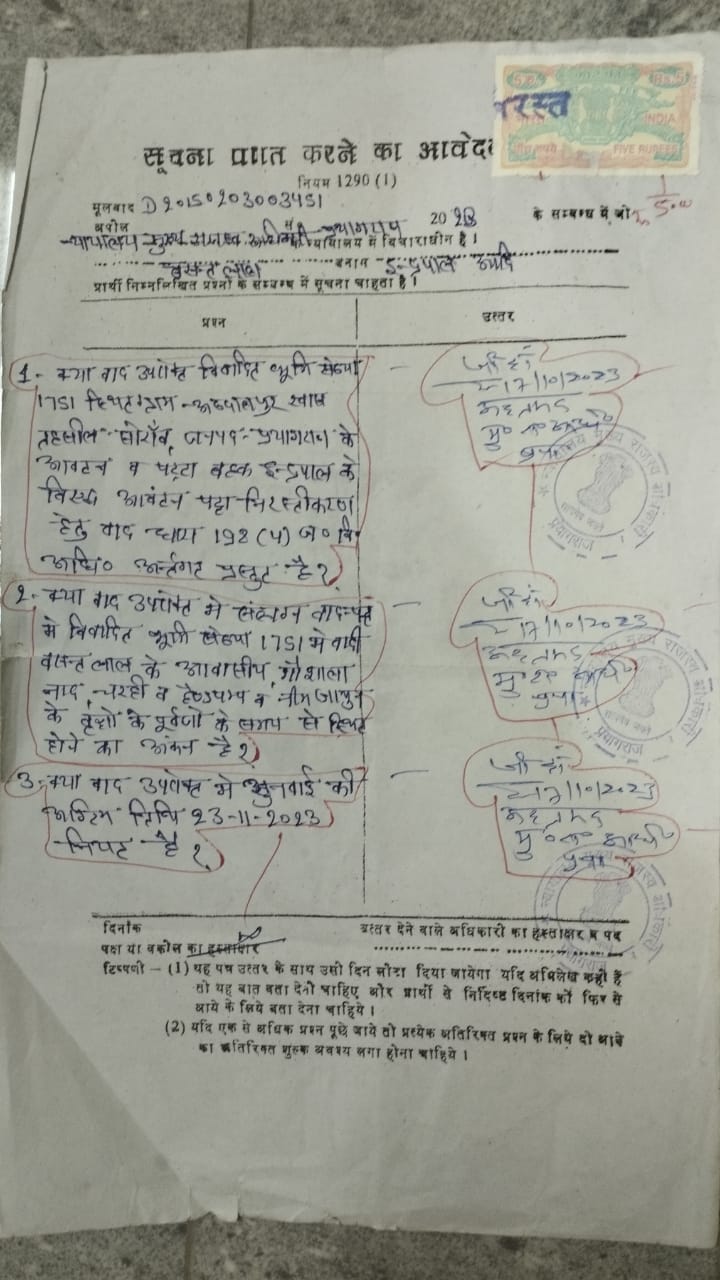 5 रु.
Rs.5
रस्त
INDIA
FIVE RUPEES
सूचना प्राप्त करने का आवेदन
नियम 1290 (1)
मूलवाद D20150203003451
अपील
में 2023 के सम्बन्ध में जो
न्यायालय मुख्य राजस्व प्रयागराज न्यायालय में विचाराधीन है।
बसन्त लाल बनाम इन्द्रपाल आदि
प्रार्थी निम्नलिखित प्रश्नों के सम्बन्ध में सूचना चाहता है।
प्रश्न
उत्तर
1- क्या वाद उपरोक्त विवादित भूमि संख्या
1751 स्थित ग्राम-अब्दालपुर खास
तहसील-सोराँव, जनपद-प्रयागराज के
आवंटन व पट्टा बहक इन्द्रपाल के
विरुद्ध आवंटन पट्टा निरस्तीकरण
हेतु वाद धारा 198 (4) ज० वि०
अधि० अर्न्तगत प्रस्तुत है?
जी हाँ
17/10/2023
अहलमद
2- क्या वाद उपरोक्त मे संलग्न वाद-पत्र
मे विवादित भूमि संख्या 1751 मे वादी
बसन्त लाल के आवासीय, गौशाला
नाद, चरही व हैण्डपम्प व नीम जामुन
के वृक्षो के पूर्वजो के समय से स्थित
होने का अंकन है?
जी हाँ
17/10/2023
अहलमद
3- क्या वाद उपरोक्त मे सुनवाई की
अग्रिम तिथि 23-11-2023
नियत है?
जी हाँ
17/10/2023
अहलमद
दिनांक
उत्तर देने वाले अधिकारी का हस्ताक्षर व पद
पक्ष या वकील का हस्ताक्षर
टिप्पणी - (1) यह पत्र उत्तर के साथ उसी दिन लौटा दिया जायेगा यदि अभिलेख कहीं है
तो यह बात बता देनी चाहिए और प्रार्थी से निर्दिष्ट दिनांक कों फिर से
आये के लिये बता देना चाहिये।
(2) यदि एक से अधिक प्रश्न पूछे जाये तो प्रत्येक अतिरिक्त प्रश्न के लिये दो आने
का अतिरिक्त शुल्क अवश्य लगा होना चाहिये।